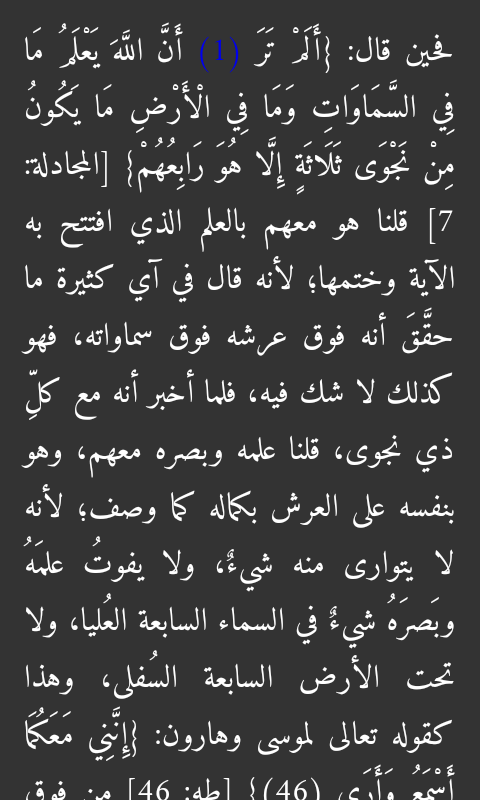 فحين قال: {أَلَمْ تَرَ (1) أَنَّ اللَّهَ يَعْلَمُ مَا
فِي السَّمَاوَاتِ وَمَا فِي الْأَرْضِ مَا يَكُونُ
مِنْ نَجْوَى ثَلَاثَةٍ إِلَّا هُوَ رَابِعُهُمْ} [المجادلة:
7] قلنا هو معهم بالعلم الذي افتتح به
الآية وختمها؛ لأنه قال في آي كثيرة ما
حقَّقَ أنه فوق عرشه فوق سماواته، فهو
كذلك لا شك فيه، فلما أخبر أنه مع كلِّ
ذي نجوى، قلنا علمه وبصره معهم، وهو
بنفسه على العرش بكماله كما وصف؛ لأنه
لا يتوارى منه شيءٌ، ولا يفوتُ علمَهُ
وبَصرَهُ شيءٌ في السماء السابعة العُليا، ولا
تحت الأرض السابعة السُفلى، وهذا
كقوله تعالى لموسى وهارون: {إِنَّنِي مَعَكُمَا
أَسْمَعُ وَأَرَى (46)} [طه: 46] من فوق